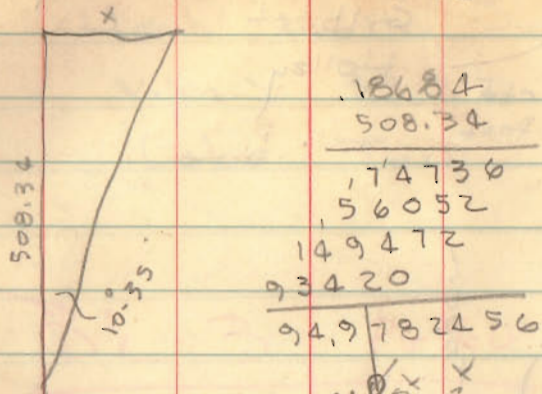 x
508.34
10°-35
.18684
508.34
,74736
,56052
149472
93420
94,9782456
x x